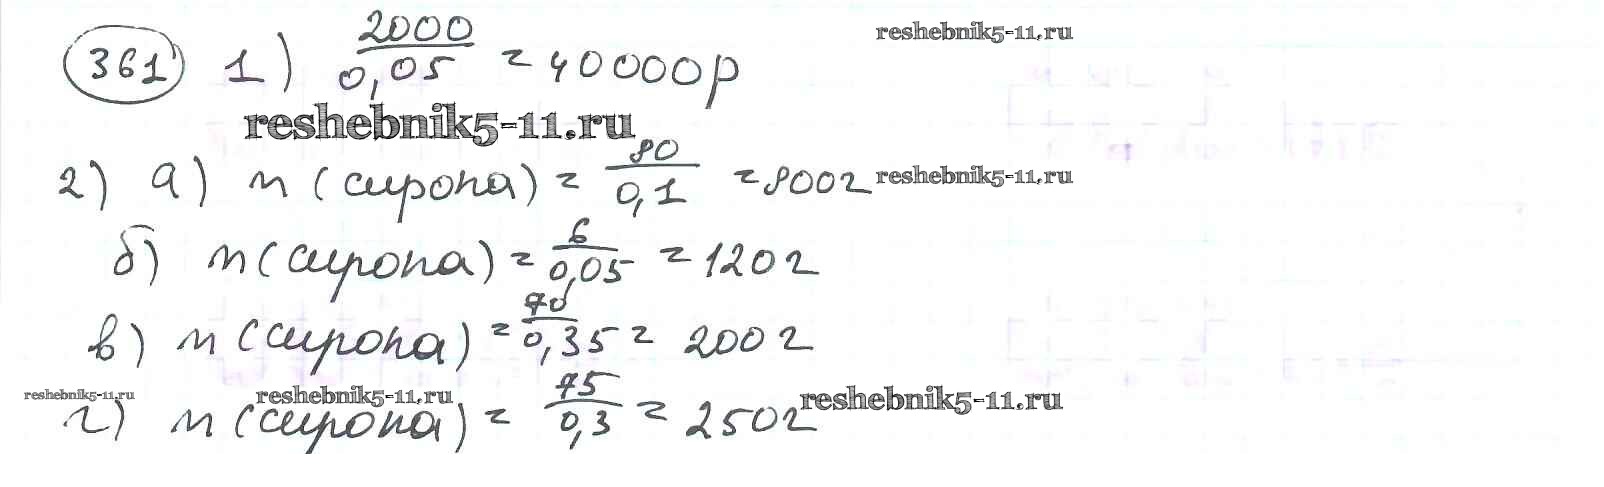 reshebnik5-11.ru
361 1) 2000/0,05 = 40000р
reshebnik5-11.ru
2) а) m (сиропа) = 80/0,1 = 800г reshebnik5-11.ru
б) m (сиропа) = 6/0,05 = 120г
в) m (сиропа) = 70/0,35 = 200г
reshebnik5-11.ru reshebnik5-11.ru reshebnik5-11.ru
г) m (сиропа) = 75/0,3 = 250г